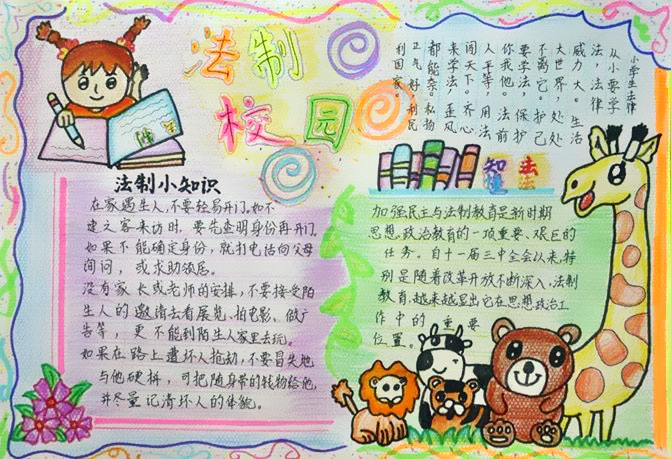 法制
校园
小学生法律
从小要学
法，法律
威力大。生活
大世界，处处
不离它。护己
要学法，保护
你我他。法前
人平等。用法
闯天下。齐心
来学法。歪风
都能杀。私物
正气好。利民
利国家。
法制小知识
在家遇生人，不要轻易开门。如不
建之客来访时，要先查明身份再开门，
如果不能确定身份，就打电话向父母
询问，或求助领居。
没有家长或老师的安排，不要接受陌
生人的邀请去看展览、拍电影、做广
告等，更不能到陌生人家里去玩。
如果在路上遭坏人抢劫，不要冒失地
与他硬拼，可把随身带的钱物给他，
并尽量记清坏人的体貌。
知法
加强民主与法制教育是新时期
思想政治教育的一项重要、艰巨的
任务。自十一届三中全会以来，特
别是随着改革开放不断深入，法制
教育越来越显出它在思想政治工
作中的重要
位置。